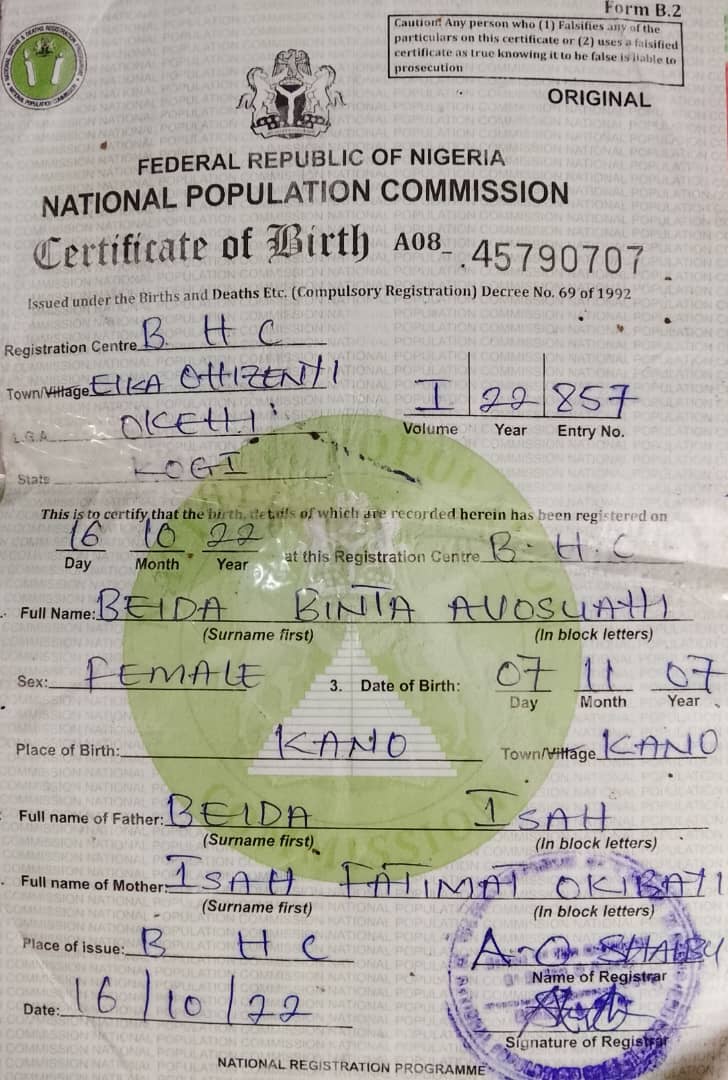 Form B.2
Caution! Any person who (1) Falsifies any of the
particulars on this certificate or (2) uses a falsified
certificate as true knowing it to be false is liable to
prosecution
ORIGINAL
FEDERAL REPUBLIC OF NIGERIA
NATIONAL POPULATION COMMISSION
Certificate of Birth A08_ .45790707
Issued under the Births and Deaths Etc. (Compulsory Registration) Decree No. 69 of 1992
Registration Centre B H C
Town/Village EIKA OHIZENYI
L.G.A. OKEHI
I 22 857
Volume Year Entry No.
State KOGI
This is to certify that the birth, details of which are recorded herein has been registered on
16 10 22
Day Month Year at this Registration Centre B.H.C
Full Name: BEIDA BINTA AVOSUAHI
(Surname first) (In block letters)
Sex: FEMALE 3. Date of Birth: 07 11 07
Day Month Year
Place of Birth: KANO Town/Village KANO
Full name of Father: BEIDA ISAH
(Surname first) (In block letters)
Full name of Mother: ISAH FATIMAT OKIBAYI
(Surname first) (In block letters)
Place of issue: B H C
A-O
Name of Registrar
Date: 16/10/22
Signature of Registrar
NATIONAL REGISTRATION PROGRAMME